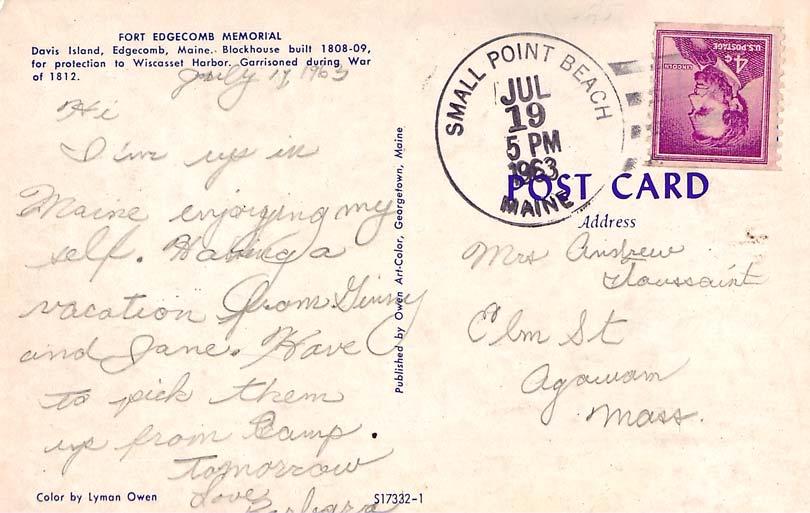 FORT EDGECOMB MEMORIAL
Davis Island, Edgecomb, Maine. Blockhouse built 1808-09,
for protection to Wiscasset Harbor. Garrisoned during War
of 1812.
July 19, 1963
Hi
I'me up in
Maine enjoying my
self. Having a
vacation from Ginny
and Jane. Have
to pick them
up from Camp.
Tomorrow
Love
Barbara
Color by Lyman Owen
S17332-1
Published by Owen Art-Color, Georgetown, Maine
SMALL POINT BEACH
JUL
19
5 PM
1963
MAINE
U.S. POSTAGE
4¢
LINCOLN
POST CARD
Address
Mrs Andrew
Toussaint
Elm St
Agawam
Mass.